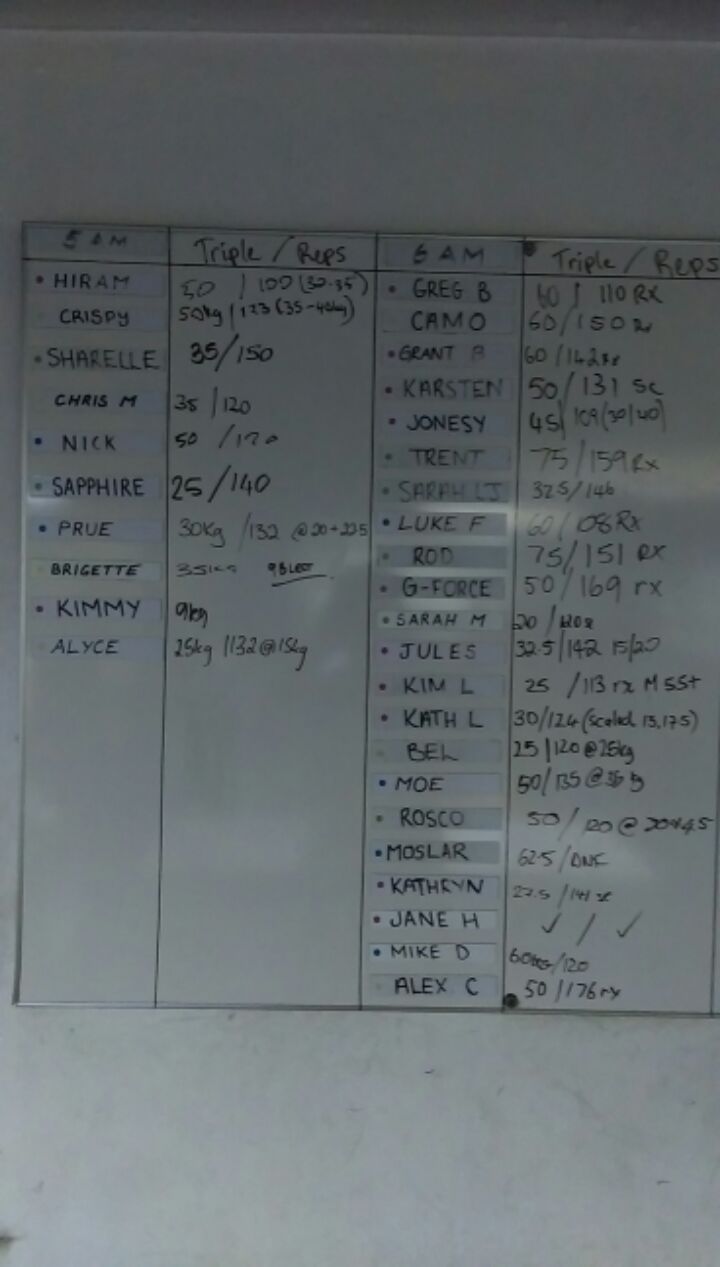 5 AM Triple / Reps
HIRAM 50 / 100 (30-35)
CRISPY 50kg / 123 (35-40kg)
SHARELLE 35/150
CHRIS M 35 /120
NICK 50 /170
SAPPHIRE 25/140
PRUE 30kg /132 @20+22.5
BRIGETTE 35kg
KIMMY 9kg
ALYCE 25kg /132@15kg
6 AM Triple / Reps
GREG B 60 / 110 RX
CAMO 60/150
GRANT B 60/142
KARSTEN 50/131 sc
JONESY 45/109(30/40)
TRENT 75/159 Rx
SARAH LJ 32.5/146
LUKE F 60/ 08 RX
ROD 75/151 RX
G-FORCE 50/169 rx
SARAH M 20 /
JULES 32.5/142 15/20
KIM L 25 /113 rx M
KATH L 30/124 (scaled 15,17.5)
BEL 25/120@25kg
MOE 50/135@
ROSCO 50/ 120 @
MOSLAR 62.5/DNF
KATHRYN 27.5 /141 sc
JANE H ✓ / ✓
MIKE D 60kg/120
ALEX C 50/176 rx